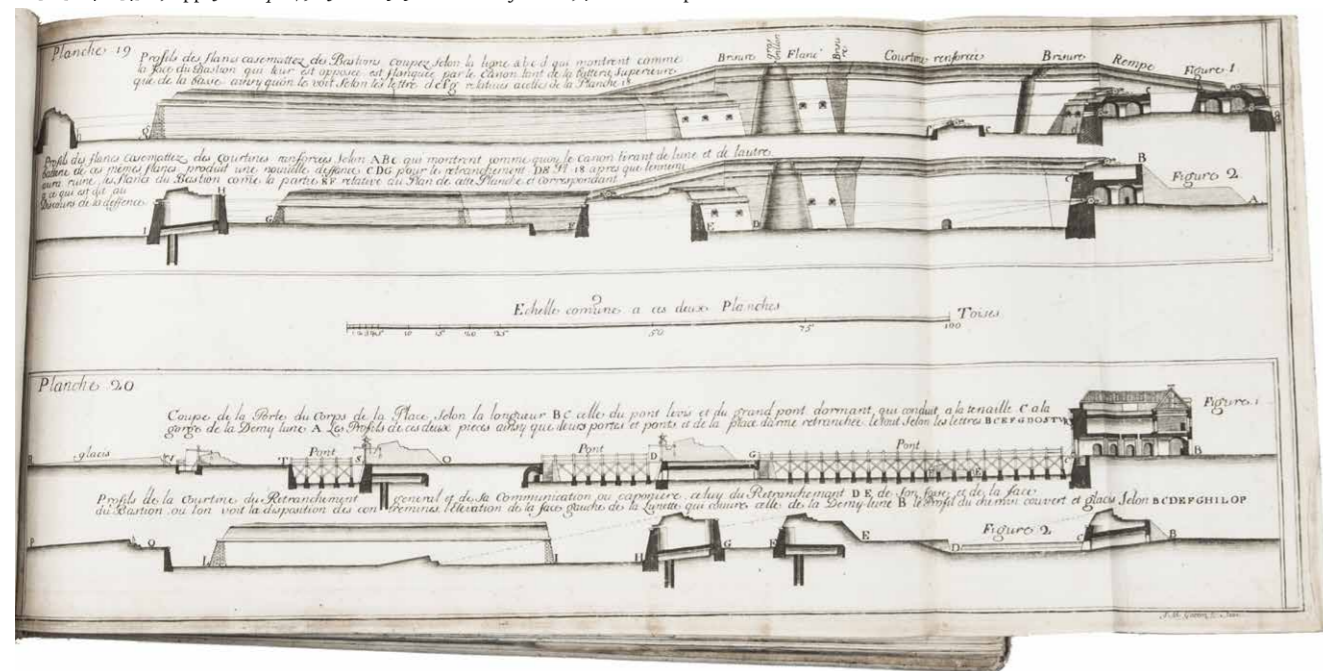 Planche 19
Profils des flancs casemattez des Bastions coupez selon la ligne abcd qui montrent comme
la face du Bastion qui leur est opposée est flanquée par le Canon tant de la batterie superieure
que de la basse ainsy qu'on le voit Selon les lettre defg relatives a celles de la Planche 18
Brisure
Flanc
Courtine renforcée
Brisure
Rempe
Figure 1
Profils des flancs casemattez des Courtines renforcées Selon ABC qui montrent comme quoy le Canon tirant de lune et de lautre
batterie de ces mêmes flancs produit une nouvelle deffence CDG pour le retranchement DE Pl 18 apres que lennemi
aura ruiné les flancs du Bastion come la partie EF relative au Plan de cette Planche et correspondant
a ce qui est dit au
Discours de la deffence
B
Figure 2
A
I
G
F
E
D
C
Echelle comune a ces deux Planches
Toises
1 2 3 4 5 10 15 20 25 50 75 100
Planche 20
Coupe de la Porte du Corps de la Place, Selon la longueur BC celle du pont levis et du grand pont dormant, qui conduit a la tenaille C a la
gorge de la Demy lune A Les Profils de ces deux pieces ainsy que leurs portes et ponts et de la place darme retranchée le tout Selon les lettres
Figure 1
glacis
T
Pont
S
O
Pont
D
G
Pont
B
Profils de la Courtine du Retranchement general et de sa Communication ou caponiere, celuy du Retranchemant DE de son fossé et de la face
du Bastion ou lon voit la disposition des contremines, l'élevation de la face gauche de la Lunette qui couvre celle de la Demy-lune B le Profil du chemin couvert et glacis Selon BCDEFGHILOP
P
O
L
I
H
G
F
E
D
Figure 2
C
B